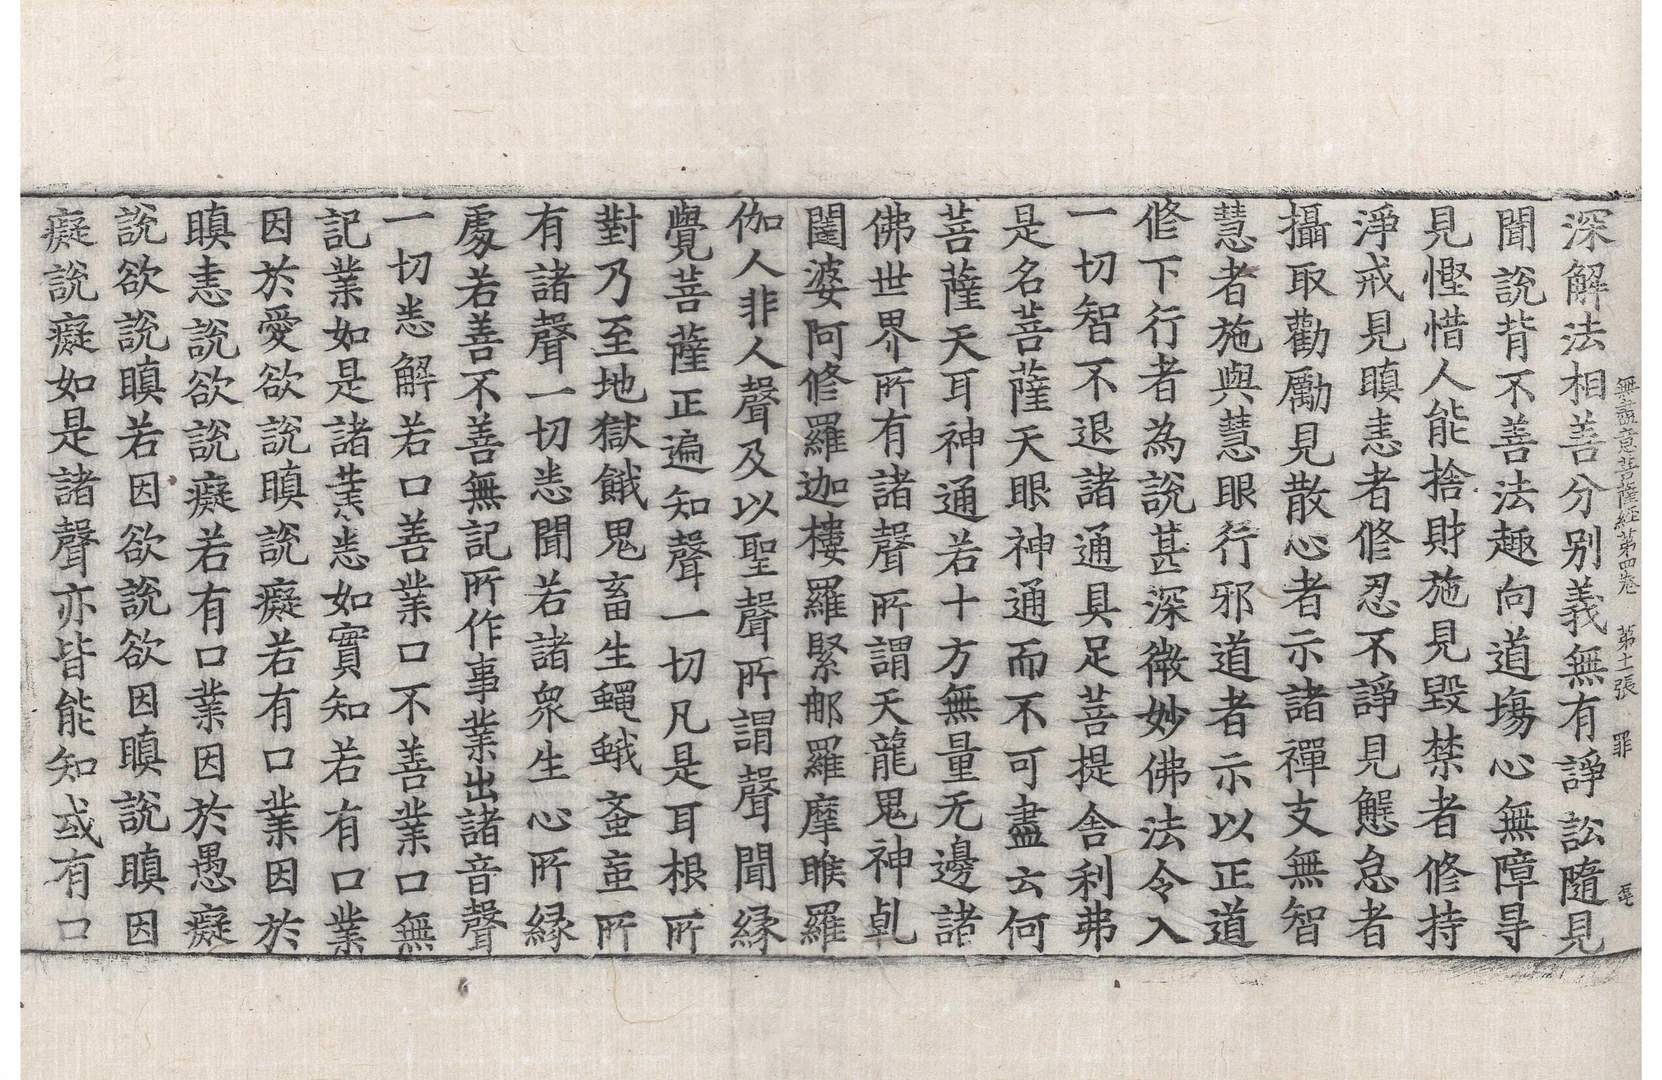 無盡意菩薩経第四卷　第十一張　罪
深解法相善分別義無有諍訟隨見
聞說背不善法趣向道場心無障㝵
見慳惜人能捨財施見毀禁者修持
淨戒見瞋恚者修忍不諍見懈怠者
攝取勸勵見散心者示諸禪支無智
慧者施與慧眼行邪道者示以正道
修下行者為說甚深微妙佛法令入
一切智不退諸通具足菩提舍利弗
是名菩薩天眼神通而不可盡云何
菩薩天耳神通若十方無量无邊諸
佛世界所有諸聲所謂天龍鬼神乹
闥婆阿修羅迦樓羅緊那羅摩睺羅
伽人非人聲及以聖聲所謂聲聞縁
覺菩薩正遍知聲一切凡是耳根所
對乃至地獄餓鬼畜生蠅蛾蚉䖟所
有諸聲一切悉聞若諸衆生心所縁
處若善不善無記所作事業出諸音聲
一切悉解若口善業口不善業口無
記業如是諸業悉如實知若有口業
因於愛欲說瞋說癡若有口業因於
瞋恚說欲說癡若有口業因於愚癡
說欲說瞋若因欲說欲因瞋說瞋因
癡說癡如是諸聲亦皆能知或有口